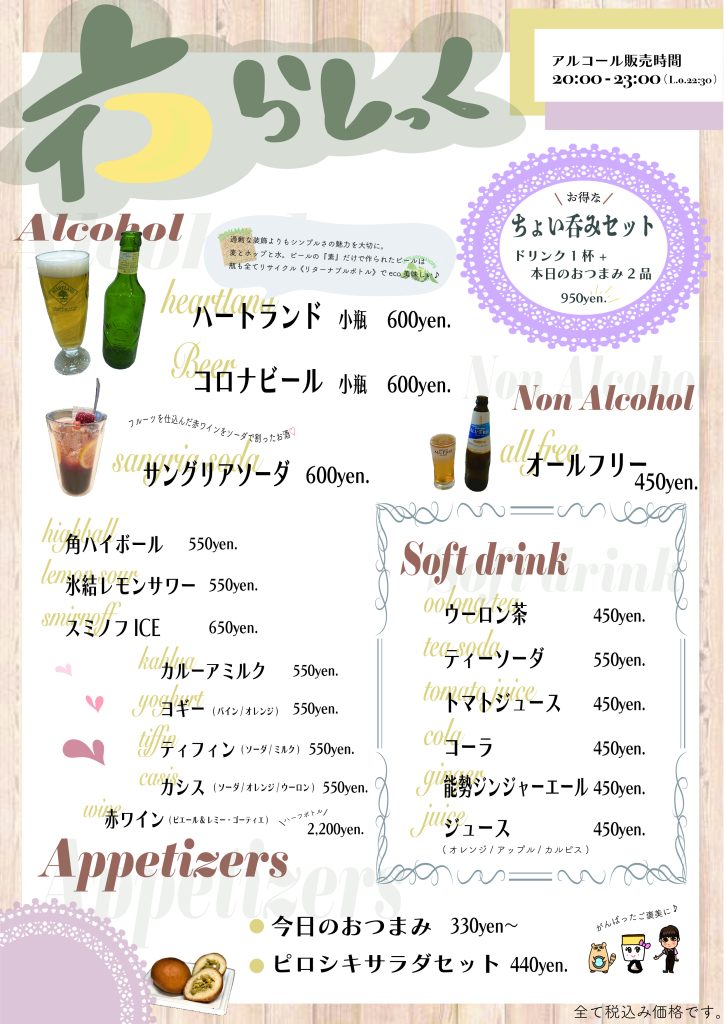 わらしっく
アルコール販売時間
20:00 - 23:00 (L.o.22:30)
\ お得な /
ちょい呑みセット
ドリンク1杯 +
本日のおつまみ2品
950yen.
Alcohol
過剰な装飾よりもシンプルさの魅力を大切に。
麦とホップと水。ビールの『素』だけで作られたビールは
瓶も全てリサイクル《リターナブルボトル》で eco 美味しい♪
heartland
ハートランド 小瓶 600yen.
Beer
コロナビール 小瓶 600yen.
フルーツを仕込んだ赤ワインをソーダで割ったお酒♡
sangria soda
サングリアソーダ 600yen.
Non Alcohol
all free
オールフリー
450yen.
highball
角ハイボール 550yen.
lemon sour
氷結レモンサワー 550yen.
smirnoff
スミノフ ICE 650yen.
kahlua
カルーアミルク 550yen.
yoghurt
ヨギー (パイン/オレンジ) 550yen.
tiffin
ティフィン (ソーダ/ミルク) 550yen.
casis
カシス (ソーダ/オレンジ/ウーロン) 550yen.
wine
赤ワイン (ピエール&レミー・ゴーティエ)
\ハーフボトル/
2,200yen.
Soft drink
oolong tea
ウーロン茶 450yen.
tea soda
ティーソーダ 550yen.
tomato juice
トマトジュース 450yen.
cola
コーラ 450yen.
ginger
能勢ジンジャーエール 450yen.
juice
ジュース 450yen.
(オレンジ/アップル/カルピス)
Appetizers
今日のおつまみ 330yen〜
ピロシキサラダセット 440yen.
がんばったご褒美に♪
全て税込み価格です。